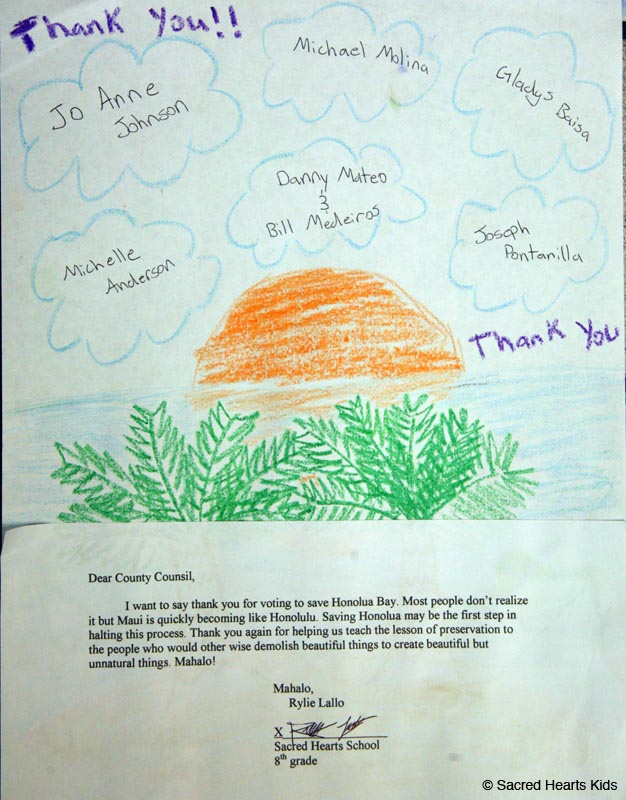 Thank You!!
Michael Molina
Gladys Baisa
Jo Anne
Johnson
Danny Mateo
&
Bill Medeiros
Michelle
Anderson
Joseph
Pontanilla
Thank You
Dear County Counsil,
I want to say thank you for voting to save Honolua Bay. Most people don't realize
it but Maui is quickly becoming like Honolulu. Saving Honolua may be the first step in
halting this process. Thank you again for helping us teach the lesson of preservation to
the people who would other wise demolish beautiful things to create beautiful but
unnatural things. Mahalo!
Mahalo,
Rylie Lallo
X
Sacred Hearts School
8th grade
© Sacred Hearts Kids